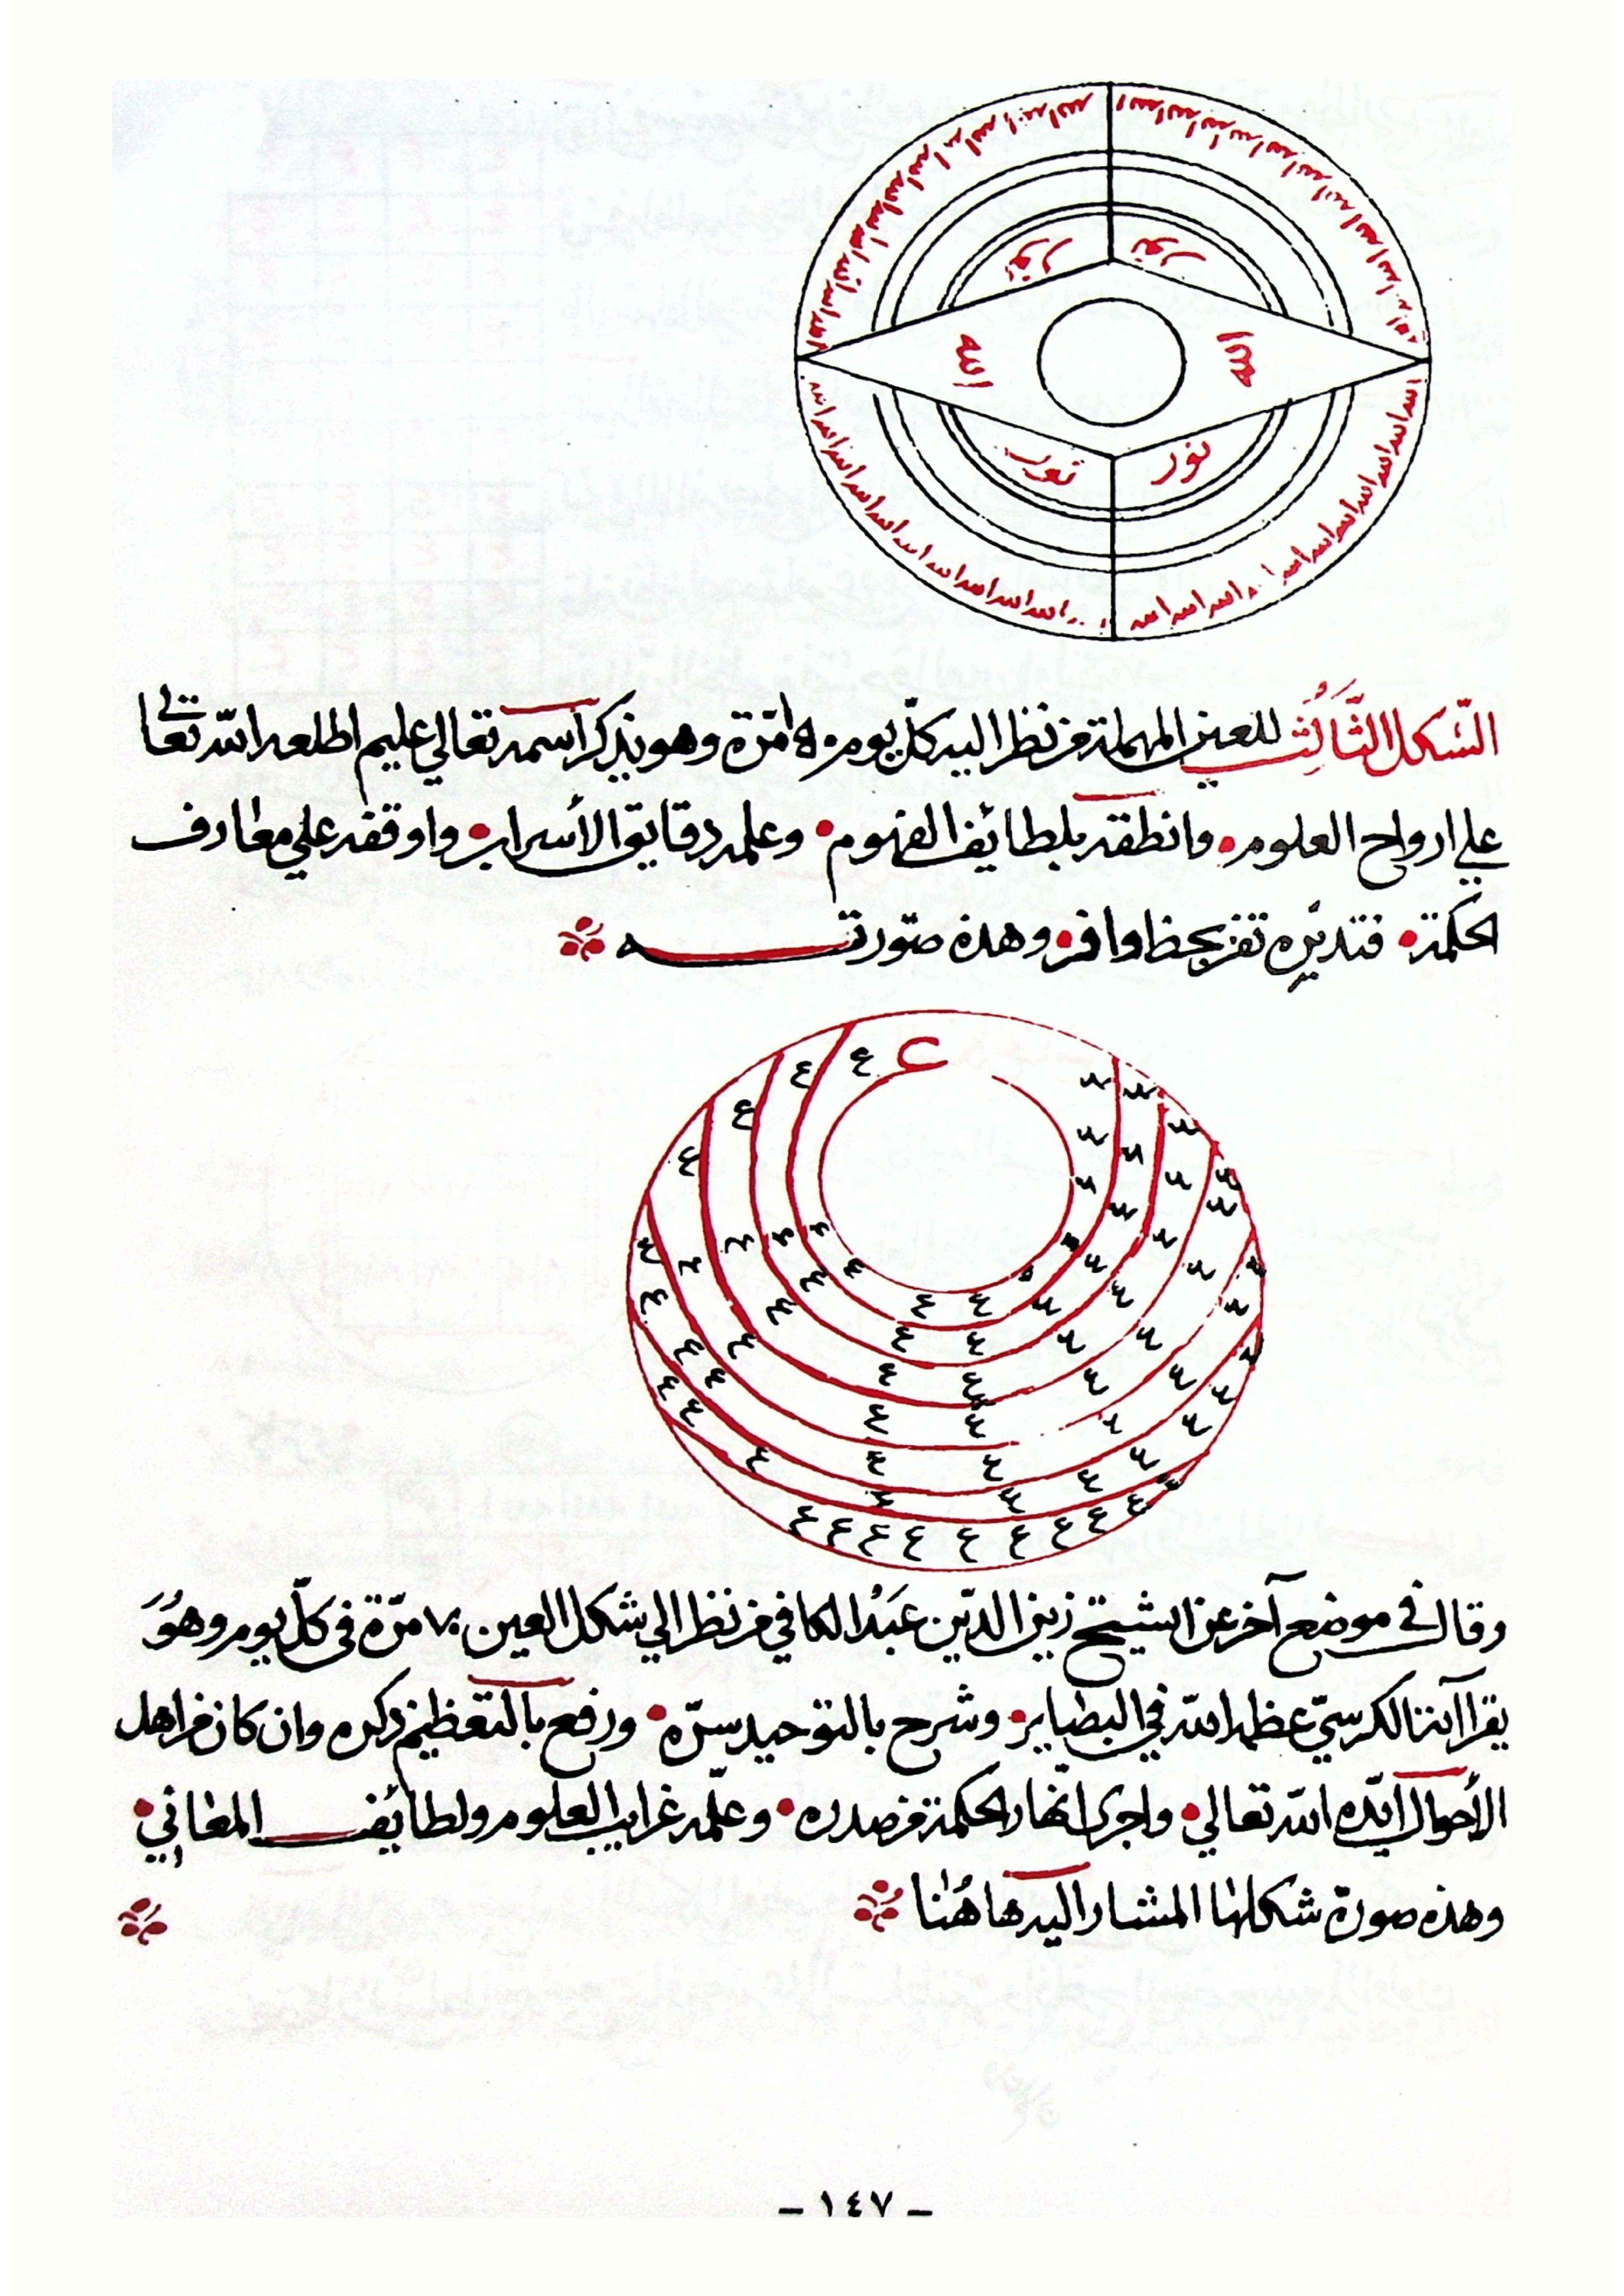 نور نور
الله الله
نور نور
الشكل الثالث للعين المهملة من نظر اليه كل يوم مرة وهو يذكر اسمه تعالي عليم اطلعه الله تعالى
علي ارواح العلوم وانطقه بلطائف الفهوم وعلمه دقايق الأسرار واوقفه علي معارف
الحكمة فتدبره تفز بحظ وافر وهذه صورته
ع
وقال في موضع آخر عن الشيخ زين الدين عبد الكافي من نظر الي شكل العين مرة في كل يوم وهو
يقرا آية الكرسي عظمه الله في البصاير وشرح بالتوحيد سره ورفع بالتعظيم ذكره وان كان من اهل
الأحوال ايده الله تعالي واجرى انهار الحكمة من صدره وعلمه غرايب العلوم ولطائف المعاني
وهذه صورة شكلها المشار اليه هاهنا
- ١٤٧ -